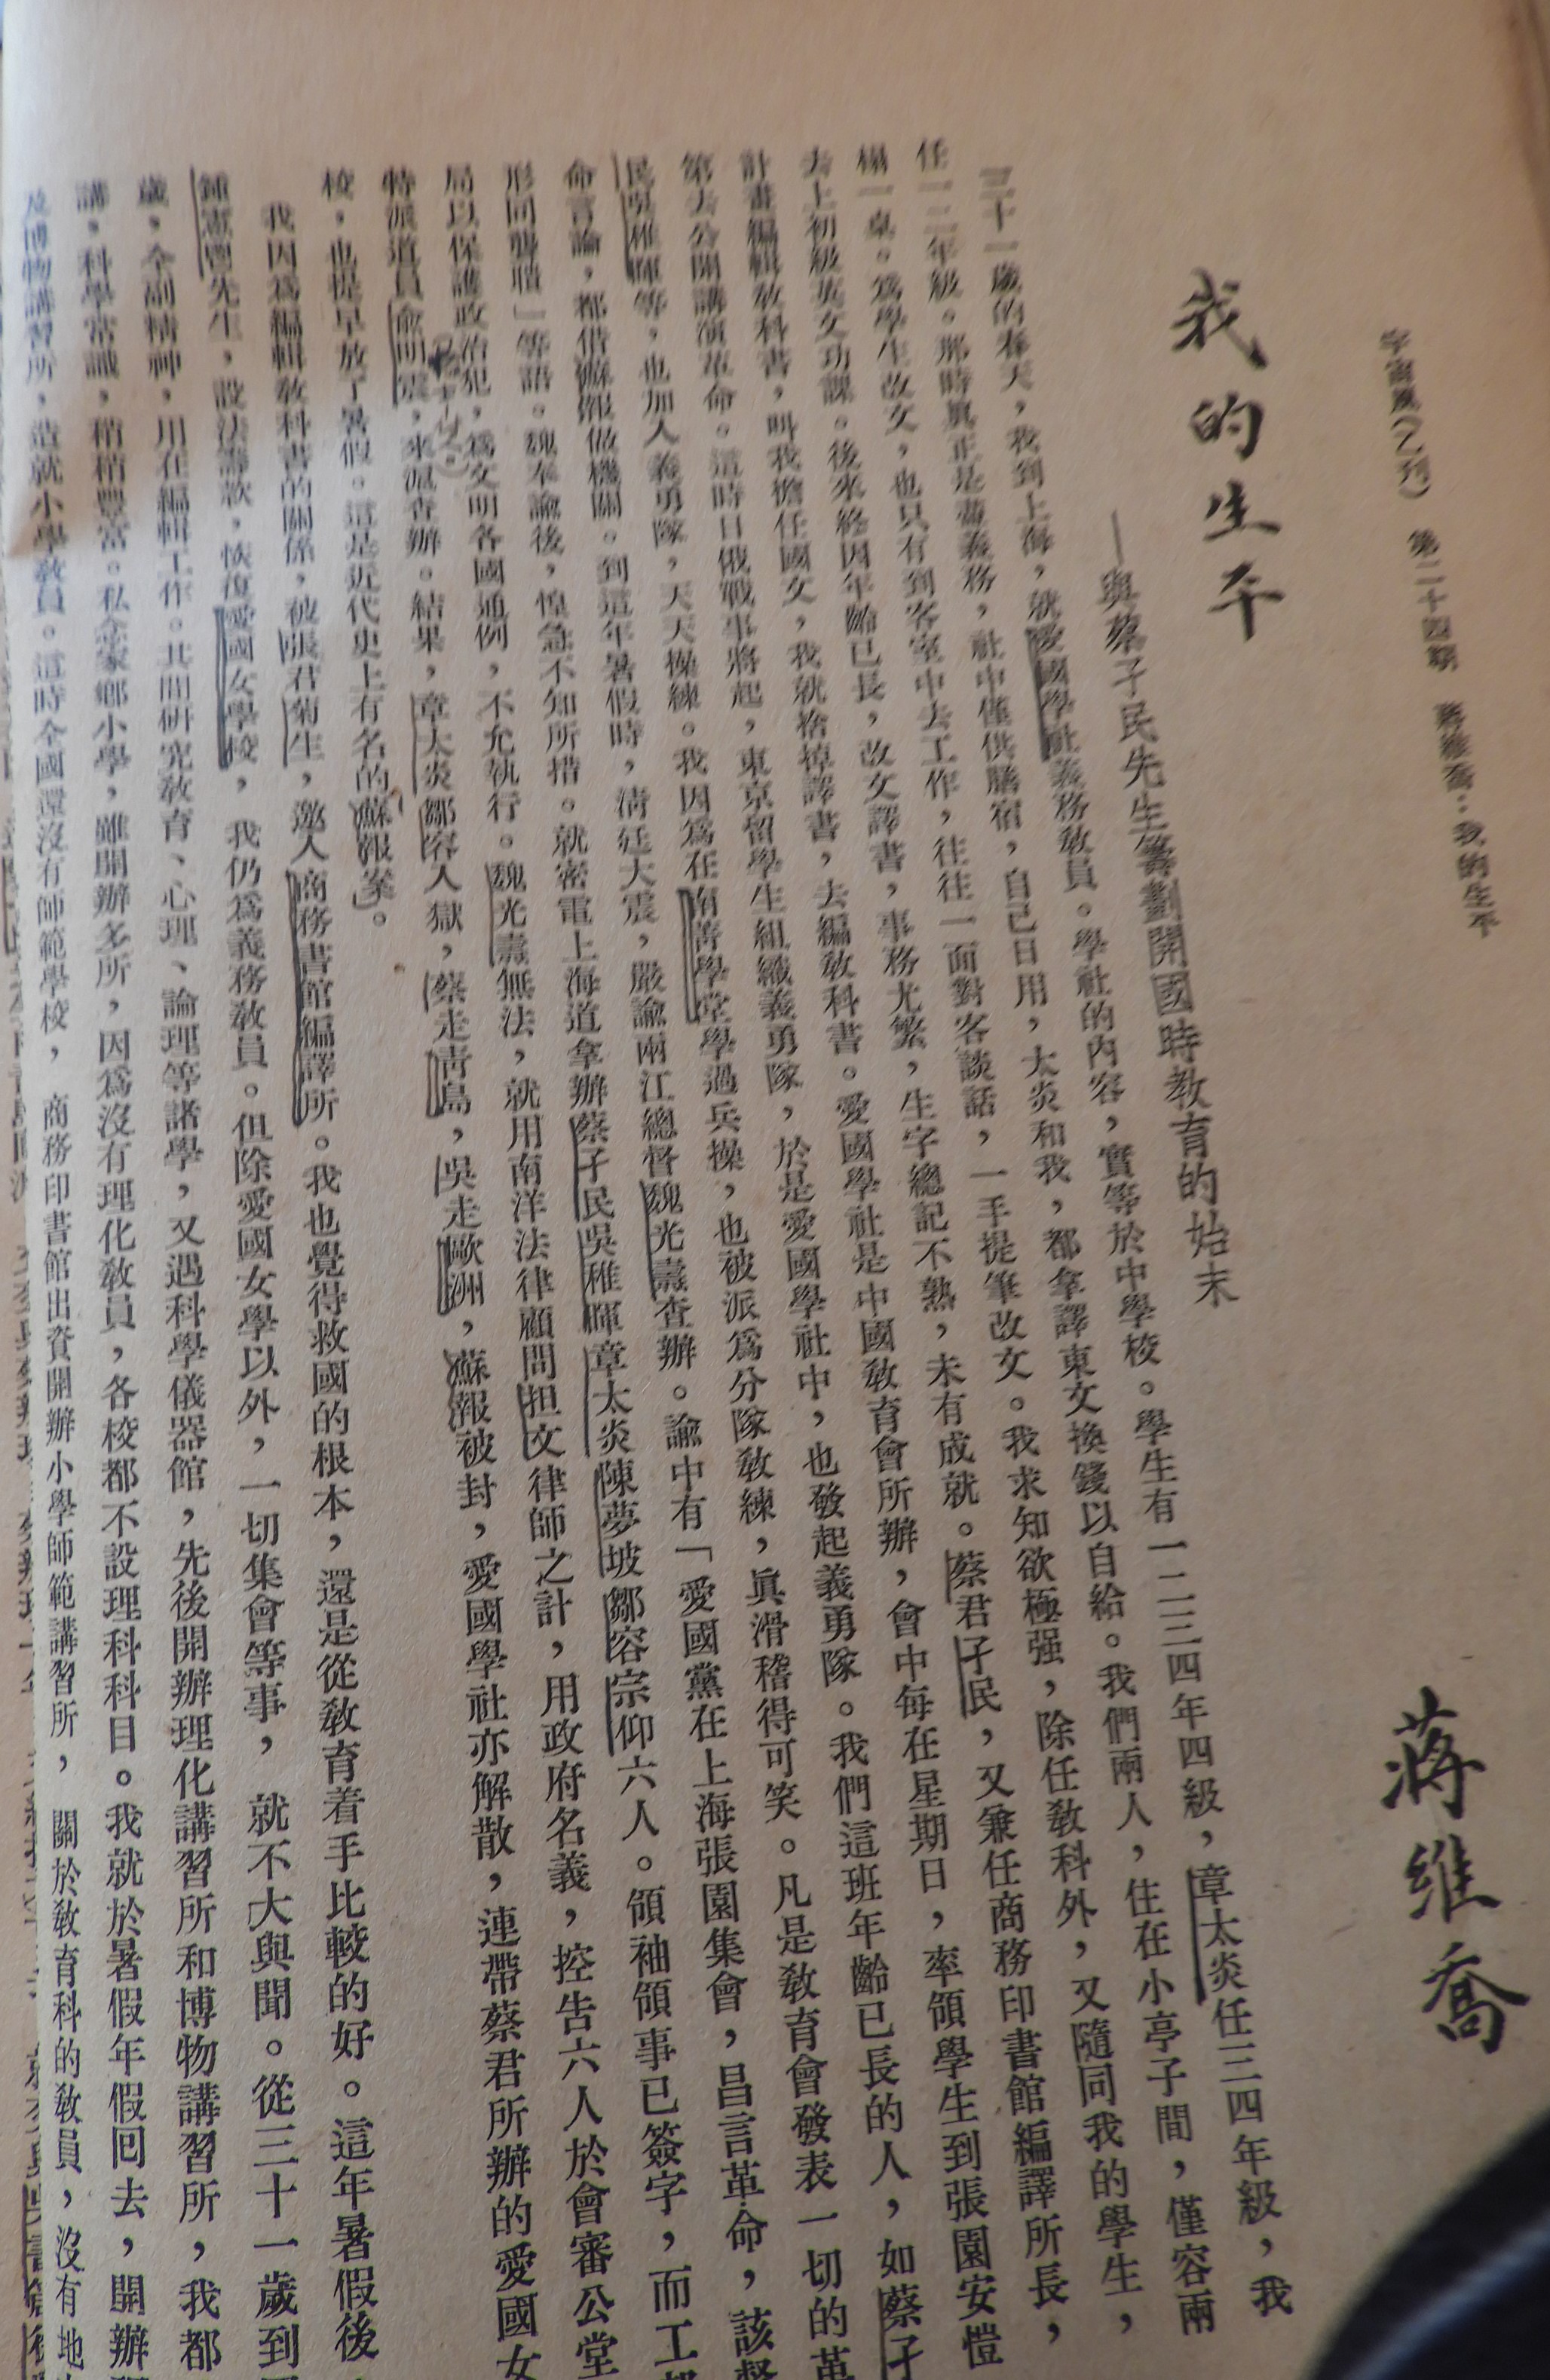 宇宙風(乙刊) 第二十四期 蔣維喬:我的生平
我的生平
蔣維喬
——與蔡孑民先生籌劃開國時教育的始末
三十一歲的春天,我到上海,就愛國學社義務敎員。學社的內容,實等於中學校。學生有一二三四年四級,章太炎任三四年級,我
任一二年級。那時眞正是盡義務,社中僅供膳宿,自己日用,太炎和我,都拿譯東文換錢以自給。我們兩人,住在小亭子間,僅容兩
榻一桌。爲學生改文,也只有到客室中去工作,往往一面對客談話,一手提筆改文。我求知欲極强,除任敎科外,又隨同我的學生,
去上初級英文功課。後來終因年齡已長,改文譯書,事務尤繁,生字總記不熟,未有成就。蔡君孑民,又兼任商務印書館編譯所長,
計畫編輯敎科書,叫我擔任國文,我就捨掉譯書,去編敎科書。愛國學社是中國敎育會所辦,會中每在星期日,率領學生到張園安愷
第去公開講演革命。這時日俄戰事將起,東京留學生組織義勇隊,於是愛國學社中,也發起義勇隊。我們這班年齡已長的人,如蔡孑
民吳稚暉等,也加入義勇隊,天天操練。我因爲在南菁學堂學過兵操,也被派爲分隊敎練,眞滑稽得可笑。凡是敎育會發表一切的革
命言論,都借蘇報做機關。到這年暑假時,淸廷大震,嚴諭兩江總督魏光燾查辦。諭中有「愛國黨在上海張園集會,昌言革命,該督
形同聾聵」等語。魏奉諭後,惶急不知所措。就密電上海道拿辦蔡孑民吳稚暉章太炎陳夢坡鄒容宗仰六人。領袖領事已簽字,而工部
局以保護政治犯,爲文明各國通例,不允執行。魏光燾無法,就用南洋法律顧問担文律師之計,用政府名義,控告六人於會審公堂
特派道員俞明震,來滬查辦。結果,章太炎鄒容入獄,蔡走靑島,吳走歐洲,蘇報被封,愛國學社亦解散,連帶蔡君所辦的愛國女
校,也提早放了暑假。這是近代史上有名的「蘇報案」。
我因爲編輯敎科書的關係,被張君菊生,邀入商務書館編譯所。我也覺得救國的根本,還是從敎育着手比較的好。這年暑假後
鍾憲鬯先生,設法籌款,恢復愛國女學校,我仍爲義務敎員。但除愛國女學以外,一切集會等事,就不大與聞。從三十一歲到
歲,全副精神,用在編輯工作。其間硏究敎育、心理、論理等諸學,又遇科學儀器館,先後開辦理化講習所和博物講習所,我都
講,科學常識,稍稍豐富。私念家鄉小學,雖開辦多所,因爲沒有理化敎員,各校都不設理科科目。我就於暑假年假回去,開辦
及博物講習所,造就小學敎員。這時全國還沒有師範學校,商務印書館出資開辦小學師範講習所,關於敎育科的敎員,沒有地